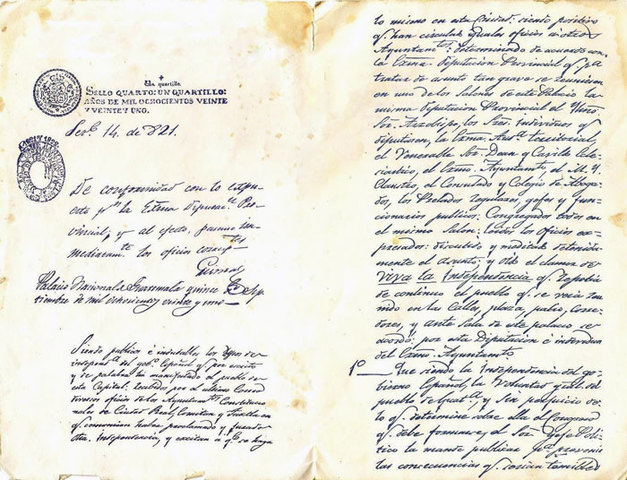 Un quartillo.
SELLO QUARTO: UN QUARTILLO:
AÑOS DE MIL OCHOCIENTOS VEINTE
Y VEINTE Y UNO.
14 de 821.
De conformidad con lo expu-
esto pr. la Exma Diputac.n Pro-
vincial, y al efecto,
los oficios
Palacio Nacional de Guatemala quince de Sep-
tiembre de mil ochocientos veinte y uno
Siendo publicos é indudables los deseos de
independ.a del gob.o Español q. por escrito
y de palabra ha manifestado el pueblo de
esta Capital: recibidos por el ultimo Correo
diversos oficios de los Ayuntam.tos Constitucio-
nales de Ciudad Real, Comitan y Tuxtla en
q. comunican haber proclamado y jurado
dha. independencia, y excitan á q. se haga
lo mismo en esta Ciudad: siendo positivo
q. han circulado iguales oficios á otros
Ayuntam.tos: determinado de acuerdo con
la Exma. Diputacion Provincial q. p.a
tratar de asunto tan grave se reuniesen
en uno de los Salones de este Palacio la
misma Diputacion Provincial, el Illmo
Sor. Arzobispo, los Sres. individuos q.
diputasen, la Exma. Aud.a territorial,
el Venerable Sor. Dean y Cavildo Ecle-
siastico, el Exmo. Ayuntam.to, el M. Y.
Claustro, el Consulado y Colegio de Aboga-
dos, los Prelados regulares, gefes y fun-
cionarios publicos: Congregados todos en
el mismo Salon: leidos los oficios ex-
presados: discutido y meditado detenida-
mente el asunto; y oido el clamor de
Viva la Independencia q. repetia
de continuo el pueblo q. se veia reu-
nido en las Calles, plaza, patio, Corre-
dores, y ante sala de este palacio se
acordó: por esta Diputacion é individuos
del Exmo. Ayuntam.to
1.º Que siendo la Independencia del go-
bierno Español, la Voluntad gral. del
pueblo de Guat.a, y sin perjuicio de
lo q. determine sobre ella el Congreso
q. debe formarse, el Sor. Gefe Poli-
tico la mande publicar p.a prevenir
las consecuencias q. serian temibles